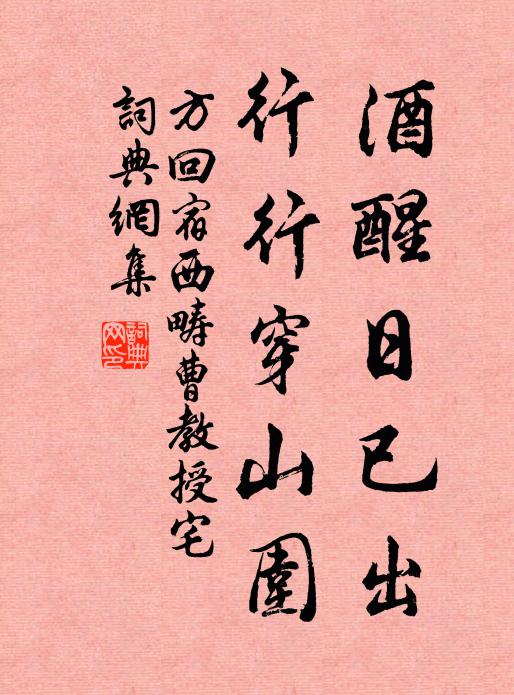 酒醒日已出
行行穿山圍
方回宿西畴曹教授宅
詞典網集
詞典網印